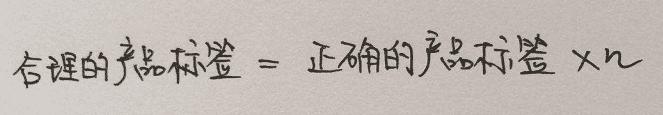 合理的产品标签 = 正确的产品标签 ×n